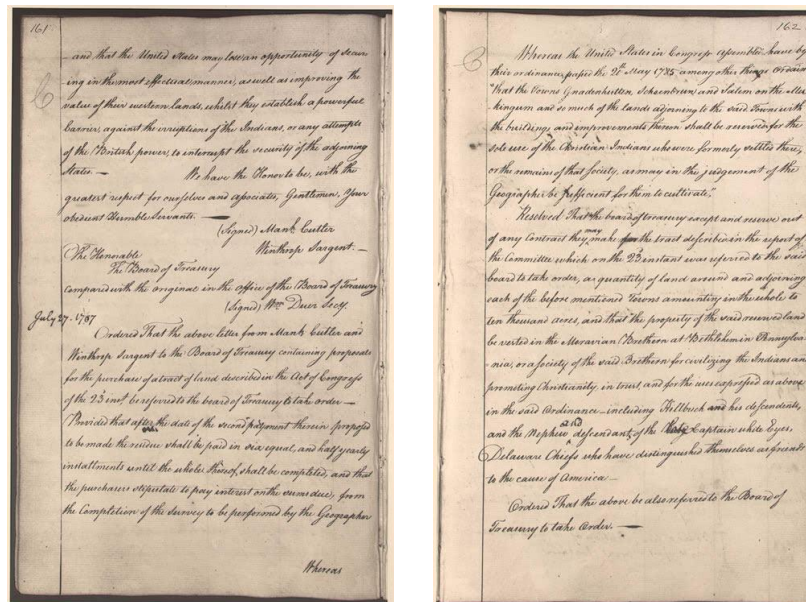 161
and that the United States may lose an opportunity of secur
ing in the most effectual manner, as well as improving the
value of their western lands, whilst they establish a powerful
barrier against the irruptions of the Indians, or any attempts
of the British power, to interrupt the security of the adjoining
States. — We have the Honor to be, with the
greatest respect for ourselves and associates, Gentlemen, your
obedient Humble Servants. —
(Signed) Manh Cutler
Winthrop Sargent. —
The Honorable
The Board of Treasury
compared with the original in the office of the Board of Treasury
(Signed) Wm Duer Secy.
July 27. 1787
Ordered That the above letter from Manh Cutler and
Winthrop Sargent to the Board of Treasury containing proposals
for the purchase of a tract of land described in the Act of Congress
of the 23 inst. be referred to the board of Treasury to take order —
Provided that after the date of the second payment therein proposed
to be made the residue shall be paid in six equal, and half yearly
installments until the whole thereof, shall be completed, and that
the purchasers stipulate to pay interest on the sums due, from
the Completion of the survey to be performed by the Geographer
Whereas
162
Whereas the United States in Congress assembled have by
their ordinance passed the 20th May 1785 among other things ordain
"That the Towns Gnadenhutten, Schoenbrun and Salem on the Mus
kingum and so much of the lands adjoining to the said Towns with
the buildings and improvements thereon shall be reserved for the
sole use of the Christian Indians who were formerly settled there,
or the remains of that society, as may in the judgement of the
Geographer be sufficient for them to cultivate."
Resolved That the board of treasury except and reserve out
of any Contract they may make for the tract described in the report of
the Committee which on the 23 instant was referred to the said
board to take order, a quantity of land around and adjoining
each of the before mentioned Towns amounting in the whole to
ten thousand acres, and that the property of the said reserved land
be vested in the Moravian Brethern at Bethlehem in Pennsylva
nia, or a society of the said Brethern for civilizing the Indians and
promoting Christianity, in trust, and for the uses expressed as above
in the said Ordinance — including Killbuck and his descendents,
and the Nephew and descendants of the late Captain white Eyes,
Delaware Chiefs who have distinguished themselves as friends
to the cause of America —
Ordered That the above be also referred to the Board of
Treasury to take Order. —